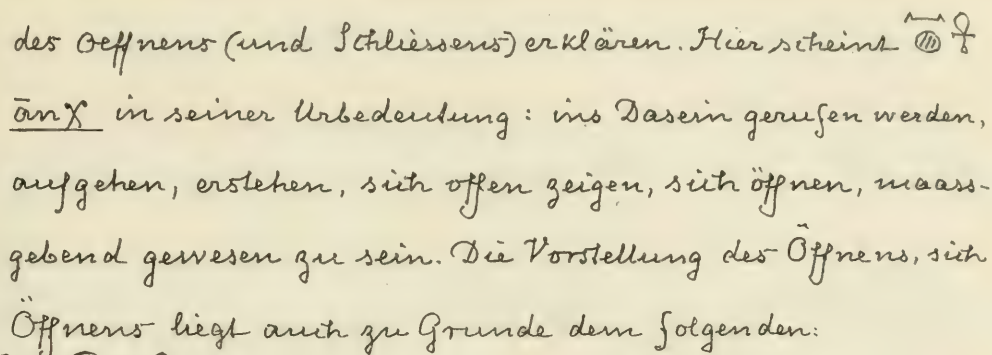 des Oeffnens (und Schliessens) erklären. Hier scheint 𓈖𓐍𓋹
ānχ in seiner Urbedeutung: ins Dasein gerufen werden,
aufgehen, erstehen, sich offen zeigen, sich öffnen, maass-
gebend gewesen zu sein. Die Vorstellung des Öffnens, sich
Öffnens liegt auch zu Grunde dem folgenden: